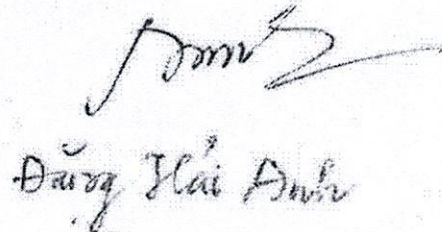 Đặng Hải Anh